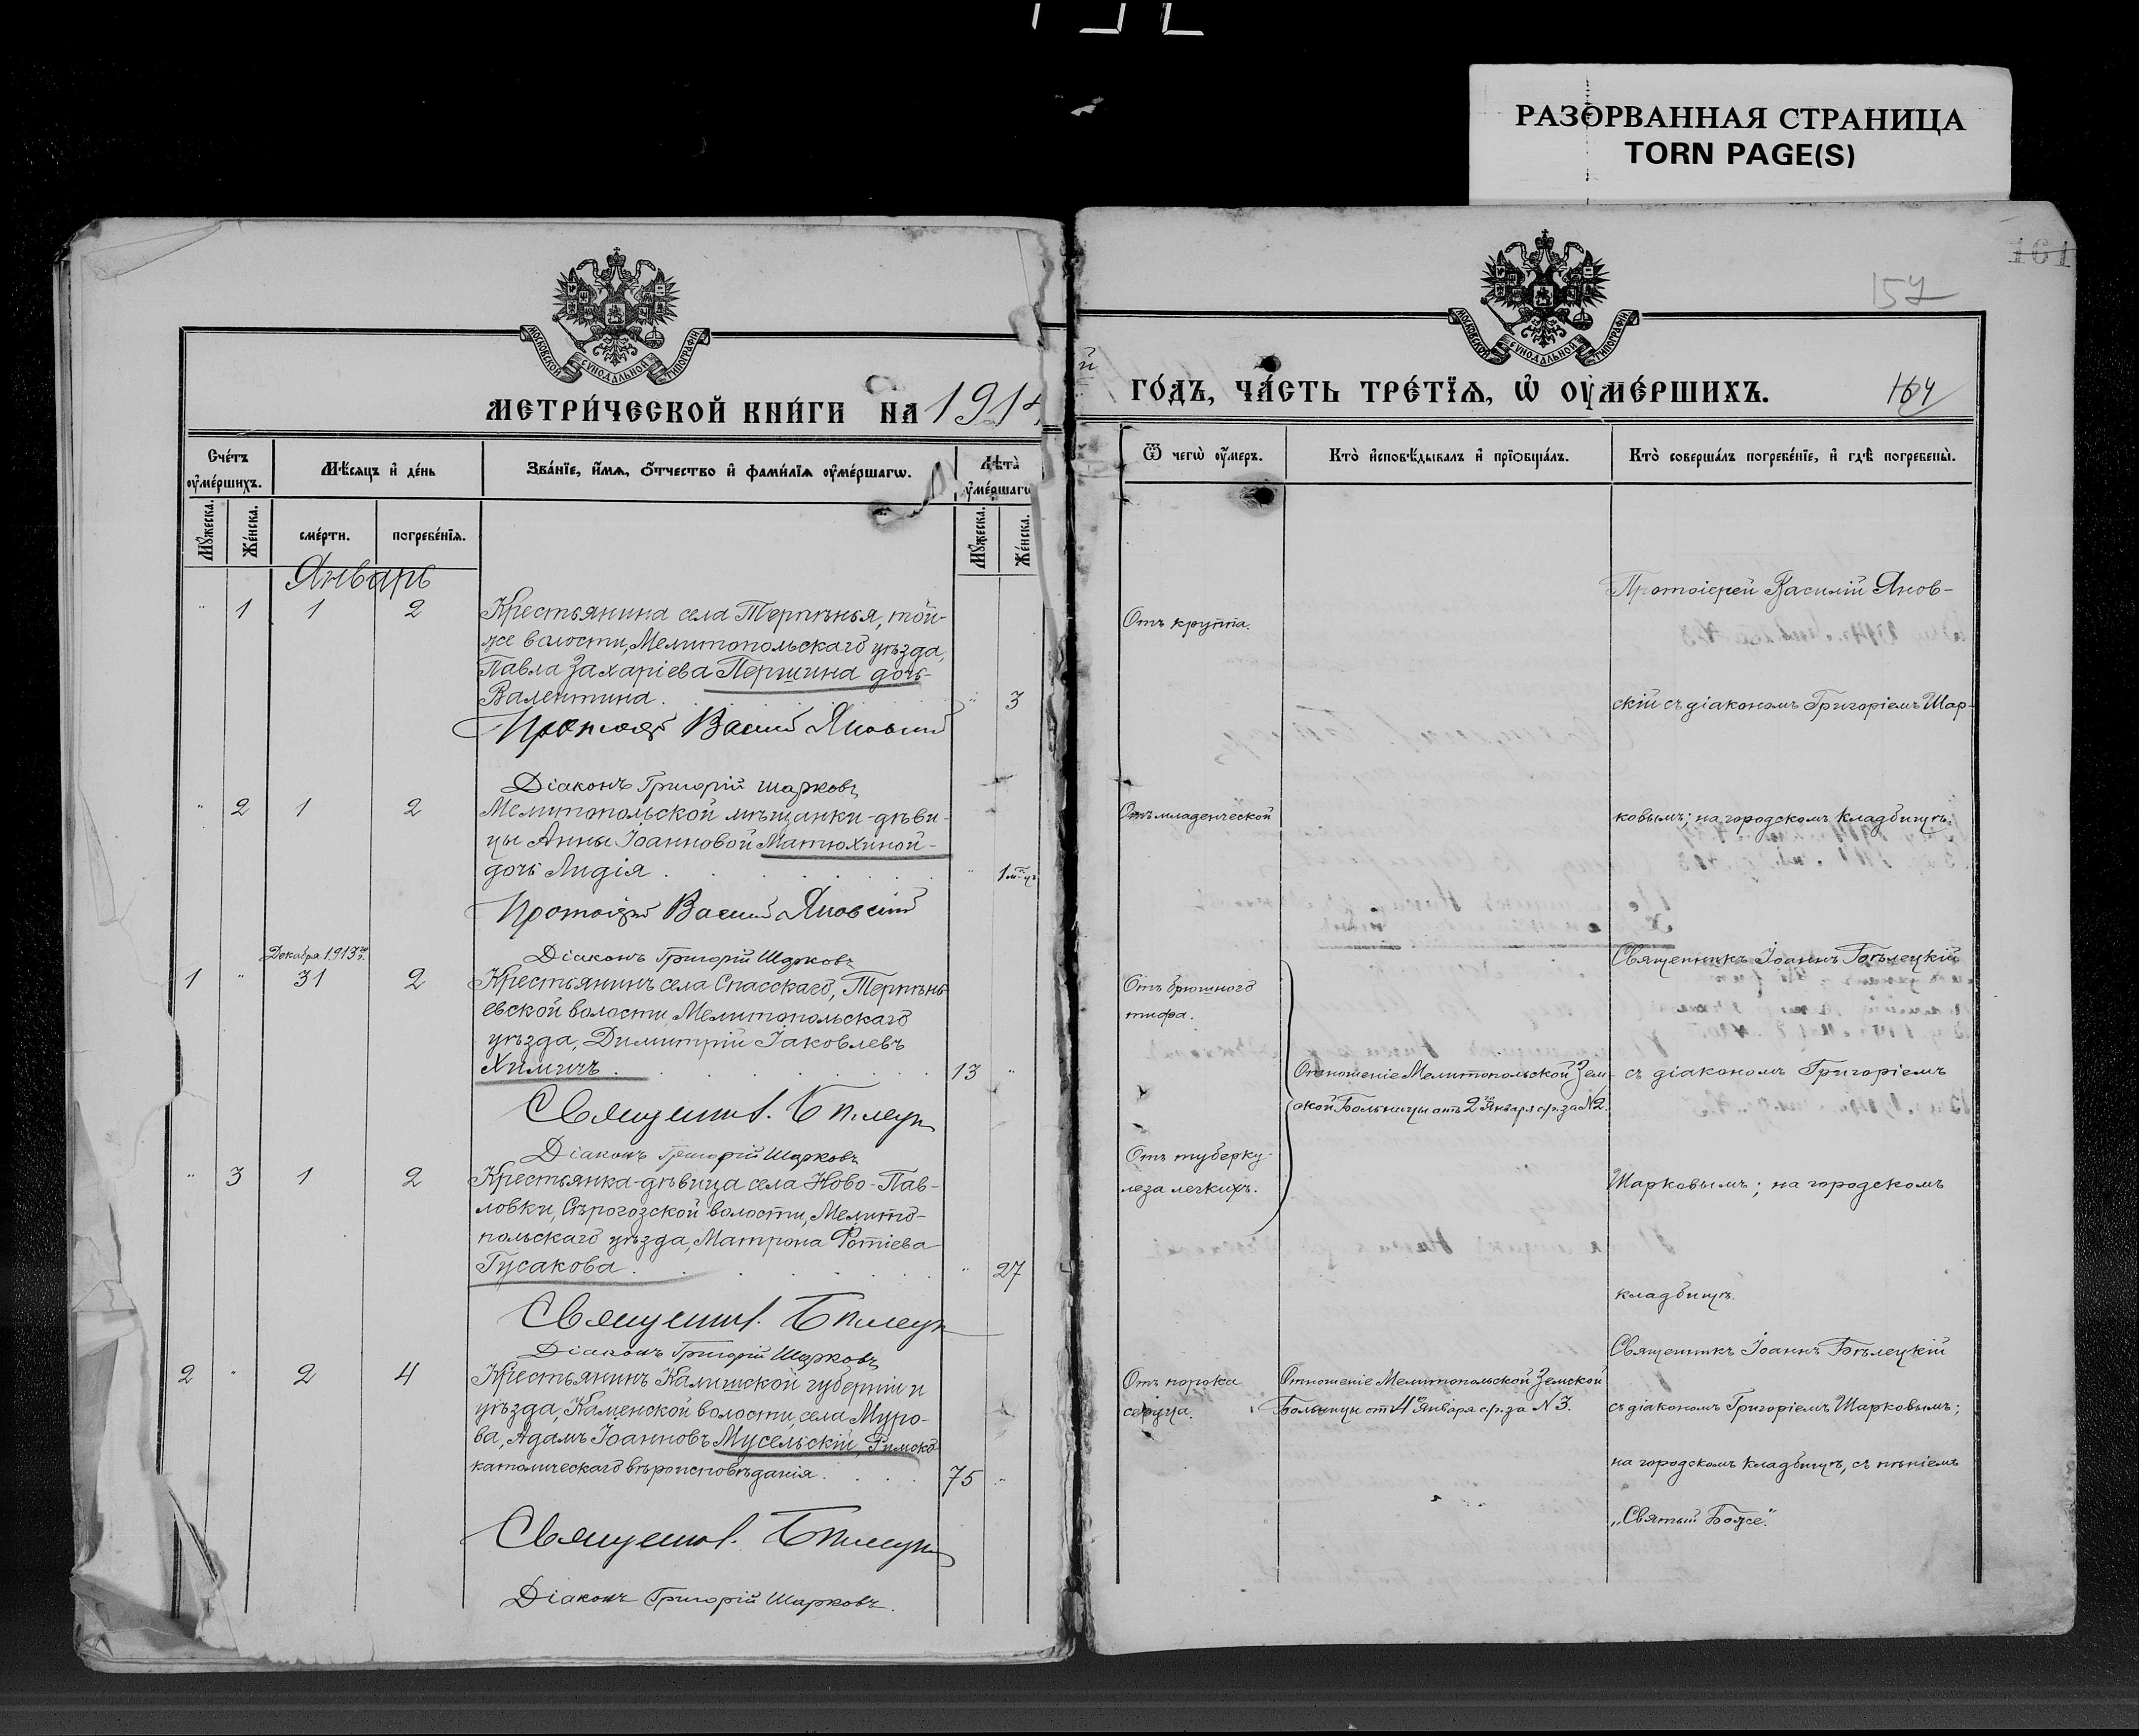 РАЗОРВАННАЯ СТРАНИЦА
TORN PAGE(S)
161
157
МОСКОВСКОЙ СѴНОДАЛЬНОЙ ТИПОГРАФІИ
МОСКОВСКОЙ СѴНОДАЛЬНОЙ ТИПОГРАФІИ
МЕТРИ́ЧЕСКОЙ КНИ́ГИ НА 1914
й ГО́ДЪ, ЧА́СТЬ ТРЕ́ТЇѦ, Ѡ҆ ОУ҆МЕ́РШИХЪ.
164
Сче́тъ оу҆ме́ршихъ.
Мѣ́сяцъ и҆ де́нь
Зва́нїе, и҆́мѧ, ѻ҆́тчество и҆ фами́лїѧ оу҆ме́ршагѡ.
Лѣ́та оу҆ме́ршагѡ
Ѿ чегѡ̀ оу҆́меръ.
Кто̀ и҆сповѣ́дывалъ и҆ прїѡбща́лъ.
Кто̀ соверша́лъ погребе́нїе, и҆ гдѣ̀ погребены̀.
Мꙋ́жеска.
Же́нска.
сме́рти.
погребе́нїѧ.
Мꙋ́жеска.
Же́нска.
Январь
" 1 1 2
Крестьянина села Терпѣнья, той-
же волости, Мелитопольскаго уѣзда,
Павла Захаріева Першина дочь
Валентина.
" 3
Протоіер Василій Яновскій
Діаконъ Григорій Шарковъ
Отъ крупа.
Протоіерей Василій Янов-
скій съ діакономъ Григоріемъ Шар-
ковымъ; на городскомъ кладбищѣ.
" 2 1 2
Мелитопольской мѣщанки-дѣви-
цы Анны Іоанновой Матюхиной-
дочь Лидія.
" 1 м-цъ
Протоіерей Василій Яновскій
Діаконъ Григорій Шарковъ
Отъ младенческой
Декабря 1913 г.
1 " 31 2
Крестьянинъ села Спасскаго, Терпѣнь
евской волости, Мелитопольскаго
уѣзда, Димитрій Іаковлевъ
Химичъ.
13 "
Священ. І. Бѣлецк
Діаконъ Григорій Шарковъ
Отъ брюшного
тифа.
Отношеніе Мелитопольской Зем-
ской Больницы отъ 2го Января с/г. за N 2.
Священникъ Іоаннъ Бѣлецкій
съ діакономъ Григоріемъ
Шарковымъ; на городскомъ
кладбищѣ.
" 3 1 2
Крестьянка-дѣвица села Ново-Пав-
ловки, Сѣрогозской волости, Мелито-
польскаго уѣзда, Матрона Фотіева
Гусакова.
" 27
Священ. І. Бѣлецк
Діаконъ Григорій Шарковъ
Отъ туберку-
леза легкихъ.
2 " 2 4
Крестьянинъ Калишской губерніи и
уѣзда, Каменской волости, села Муро-
ва, Адамъ Іоанновъ Мусельскій, Римско
католическаго вѣроисповѣданія.
75 "
Священ. І. Бѣлецк
Діаконъ Григорій Шарковъ.
Отъ порока
сердца.
Отношеніе Мелитопольской Земской
Больницы отъ 4го Января с/г. за N 3.
Священникъ Іоаннъ Бѣлецкій
съ діакономъ Григоріемъ Шарковымъ;
на городскомъ кладбищѣ, съ пѣніемъ
„Святый Боже".